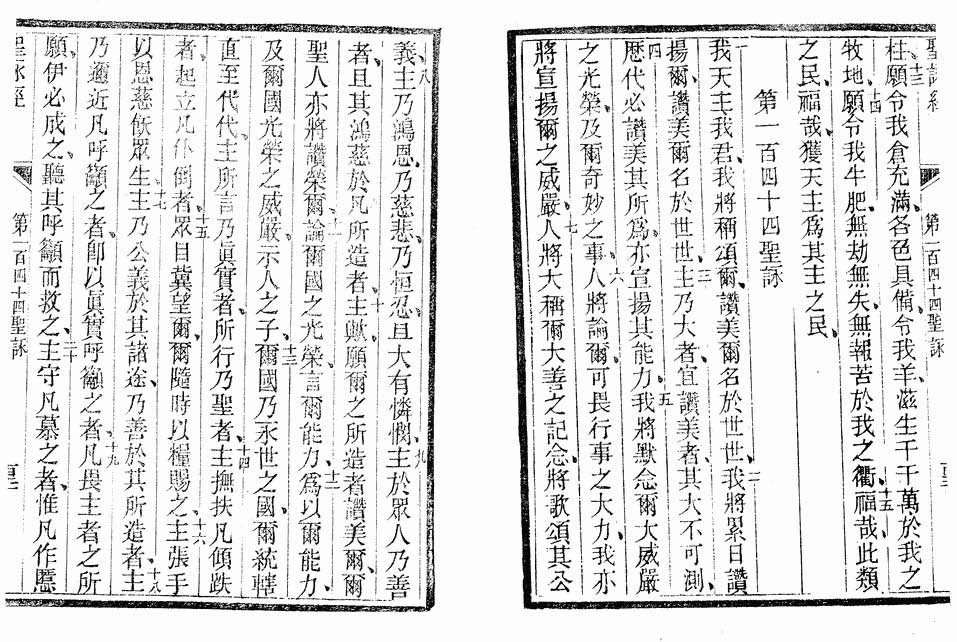 聖詠經
第一百四十四聖詠
柱、十三願令我倉充滿、各色具備、令我羊、滋生千千萬於我之
牧地、十四願令我牛肥、無劫無失、無報苦於我之衢、十五福哉、此類
之民、福哉、獲天主爲其主之民、
第一百四十四聖詠
一我天主、我君、我將稱頌爾、讚美爾名於世世、二我將累日讚
揚爾、讚美爾名於世世、三主乃大者、宜讚美者、其大不可測、
四歷代必讚美其所爲、亦宣揚其能力、五我將默念爾大威嚴
之光榮、及爾奇妙之事、六人將論爾、可畏行事之大力、我亦
將宣揚爾之威嚴、七人將大稱爾大善之記念、將歌頌其公
義、八主乃鴻恩、乃慈悲、乃恒忍、且大有憐憫、九主於眾人乃善
者、且其鴻慈於凡所造者、十主歟、願爾之所造者讚美爾、爾
聖人亦將讚榮爾、十一論爾國之光榮、言爾能力、十二爲以爾能力、
及爾國光榮之威嚴示人之子、十三爾國乃永世之國、爾統轄
直至代代、主所言乃眞實者、所行乃聖者、十四主撫扶凡傾跌
者、起立凡仆倒者、十五眾目冀望爾、爾隨時以糧賜之、十六主張手
以恩慈飫眾生、十七主乃公義於其諸途、乃善於其所造者、十八主
乃邇近凡呼籲之者、卽以眞實呼籲之者、十九凡畏主者之所
願、伊必成之、聽其呼籲而救之、二十主守凡慕之者、惟凡作慝
聖詠經
第一百四十四聖詠